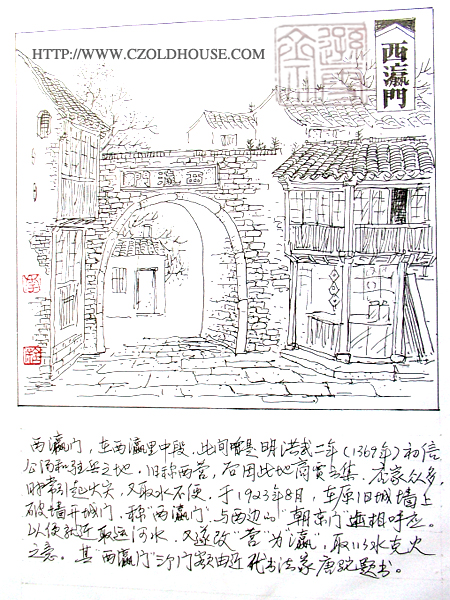 HTTP://WWW.CZOLDHOUSE.COM
西瀛門
西瀛門
西瀛门，在西瀛里中段。此间曾是明洪武二年（1369年）初信
公汤和驻兵之地。旧称西营，后因此地商贾云集，居家众多，
时常引起火灾，又取水不便，于1923年8月，在原旧城墙上
破墙开城门，称"西瀛门"与西边的"朝京门"遥相呼应。
以便就近取运河水，又遂改"营"为"瀛"，取以水克火
之意。其"西瀛门"三门额由近代书法家唐驼题书。